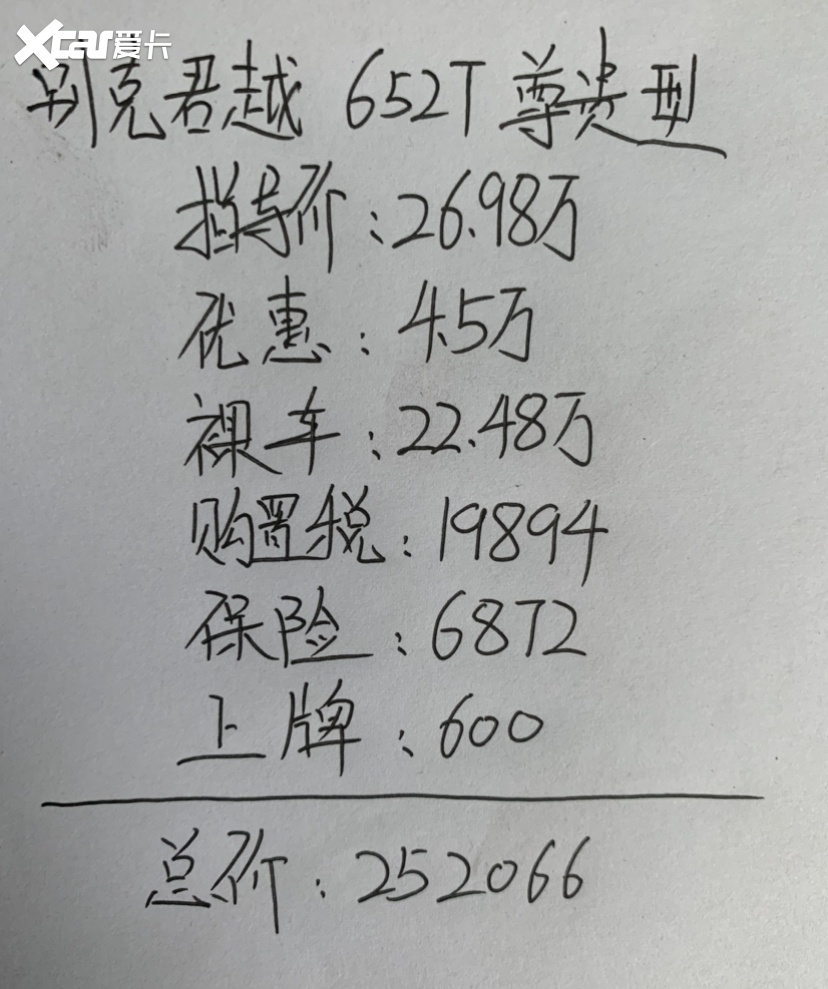 Xcar爱卡
别克君越 652T 尊贵型
指导价：26.98万
优惠：4.5万
裸车：22.48万
购置税：19894
保险：6872
上牌：600
总价：252066